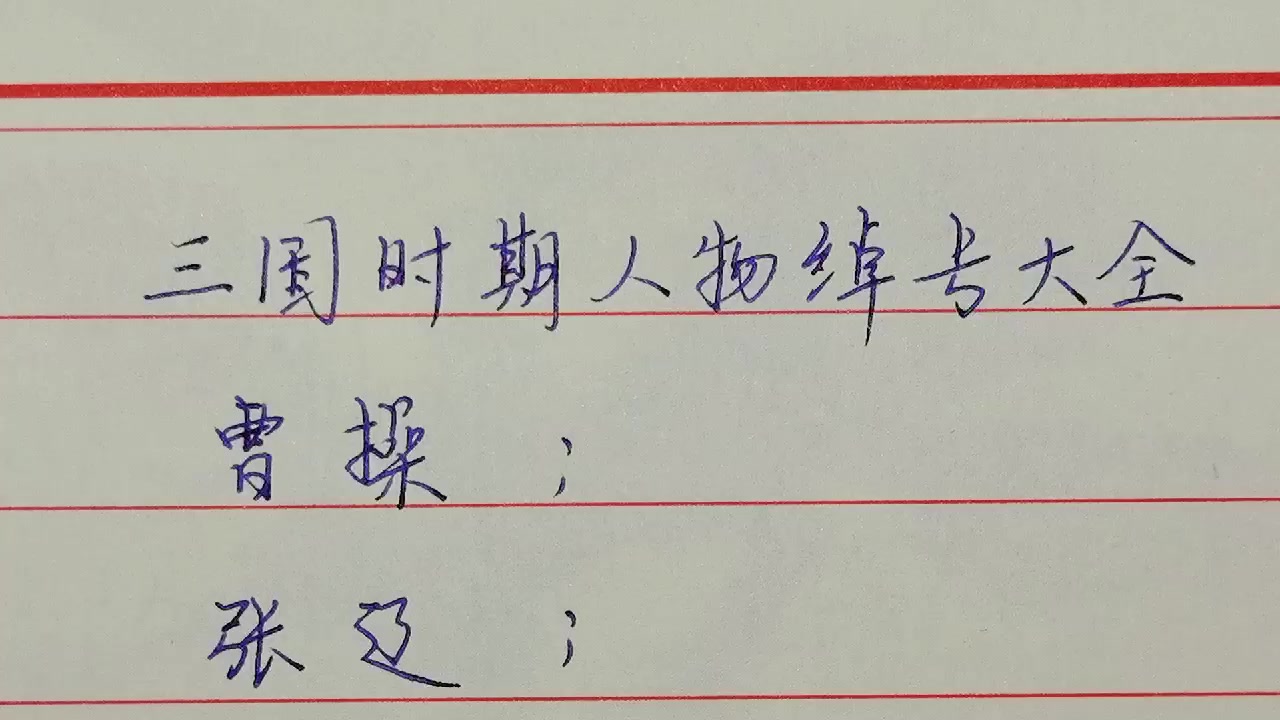 三国时期人物绰号大全
曹操；
张辽；